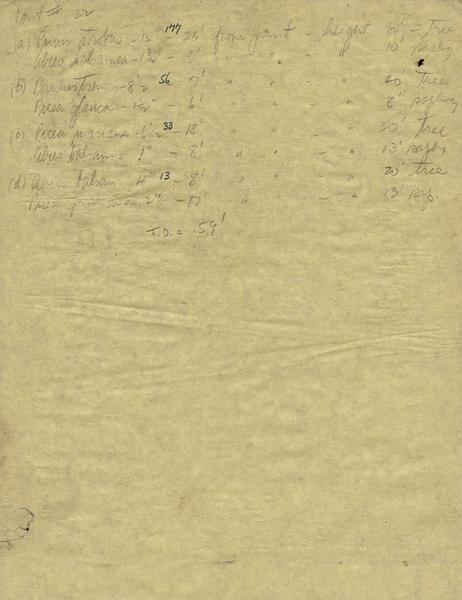 Point # 22
(a) Pinus strobus - 15" 177 26' from point - height 30' - tree
Abies balsamea - 8' " " " 10' sapling
(b) Populus trem. - 8 1/2 56 7' " " - " 40' tree
Picea glauca - 6' " " - " 8' sapling
(c) Picea mariana - 6 1/2 33 18' " " - " 30' tree
Abies balsam. 1" - 8' " " - " 13' sapling
(d) Abies balsam 4" 13 8' " " - " 20' tree
Picea 2" - 17' " " - " 13' sap.
T.D. = 59'